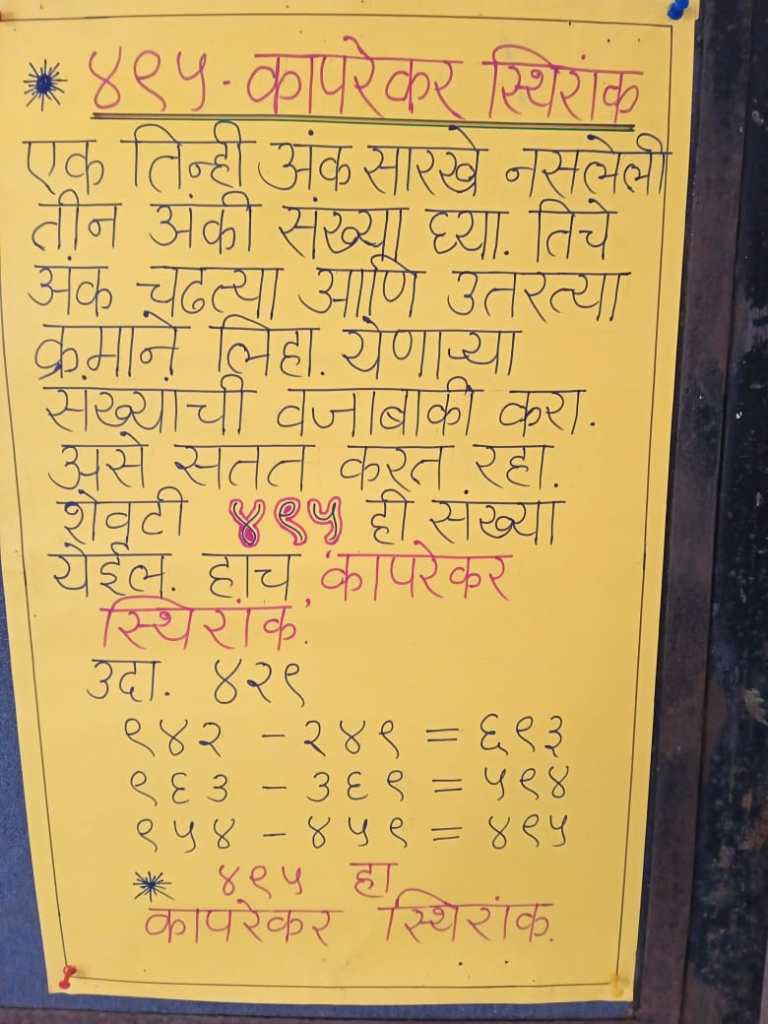 ४९५ - कापरेकर स्थिरांक
एक तिन्ही अंक सारखे नसलेली
तीन अंकी संख्या घ्या. तिचे
अंक चढत्या आणि उतरत्या
क्रमाने लिहा. येणाऱ्या
संख्यांची वजाबाकी करा.
असे सतत करत रहा.
शेवटी ४९५ ही संख्या
येईल. हाच 'कापरेकर
स्थिरांक.'
उदा. ४२९
९४२ - २४९ = ६९३
९६३ - ३६९ = ५९४
९५४ - ४५९ = ४९५
४९५ हा
कापरेकर स्थिरांक.